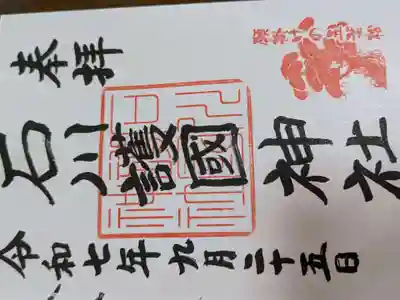 奉拝
石川護國神社
令和七年九月二十五日